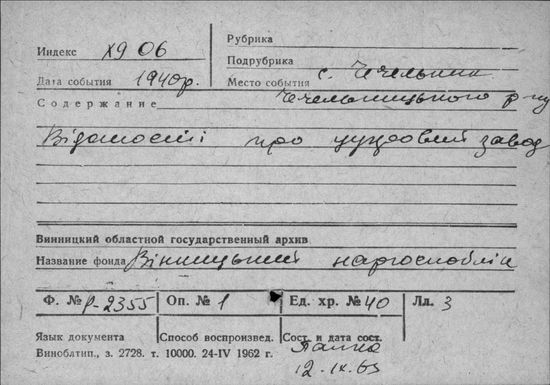 Индекс х9 06
Рубрика
Подрубрика
Дата события 1940р.
Место события с. Чечельник
Содержание Чечельницького р-ну
Відомості про цукровий завод
Винницкий областной государственный архив
Название фонда Вінницький наргоспоблік
Ф. № Р-2355 Оп. № 1 Ед. хр. № 40 Лл. 3
Язык документа Способ воспроизвед. Сост. и дата сост.
Виноблтип., з. 2728. т. 10000. 24-IV 1962 г.
12.IX.65